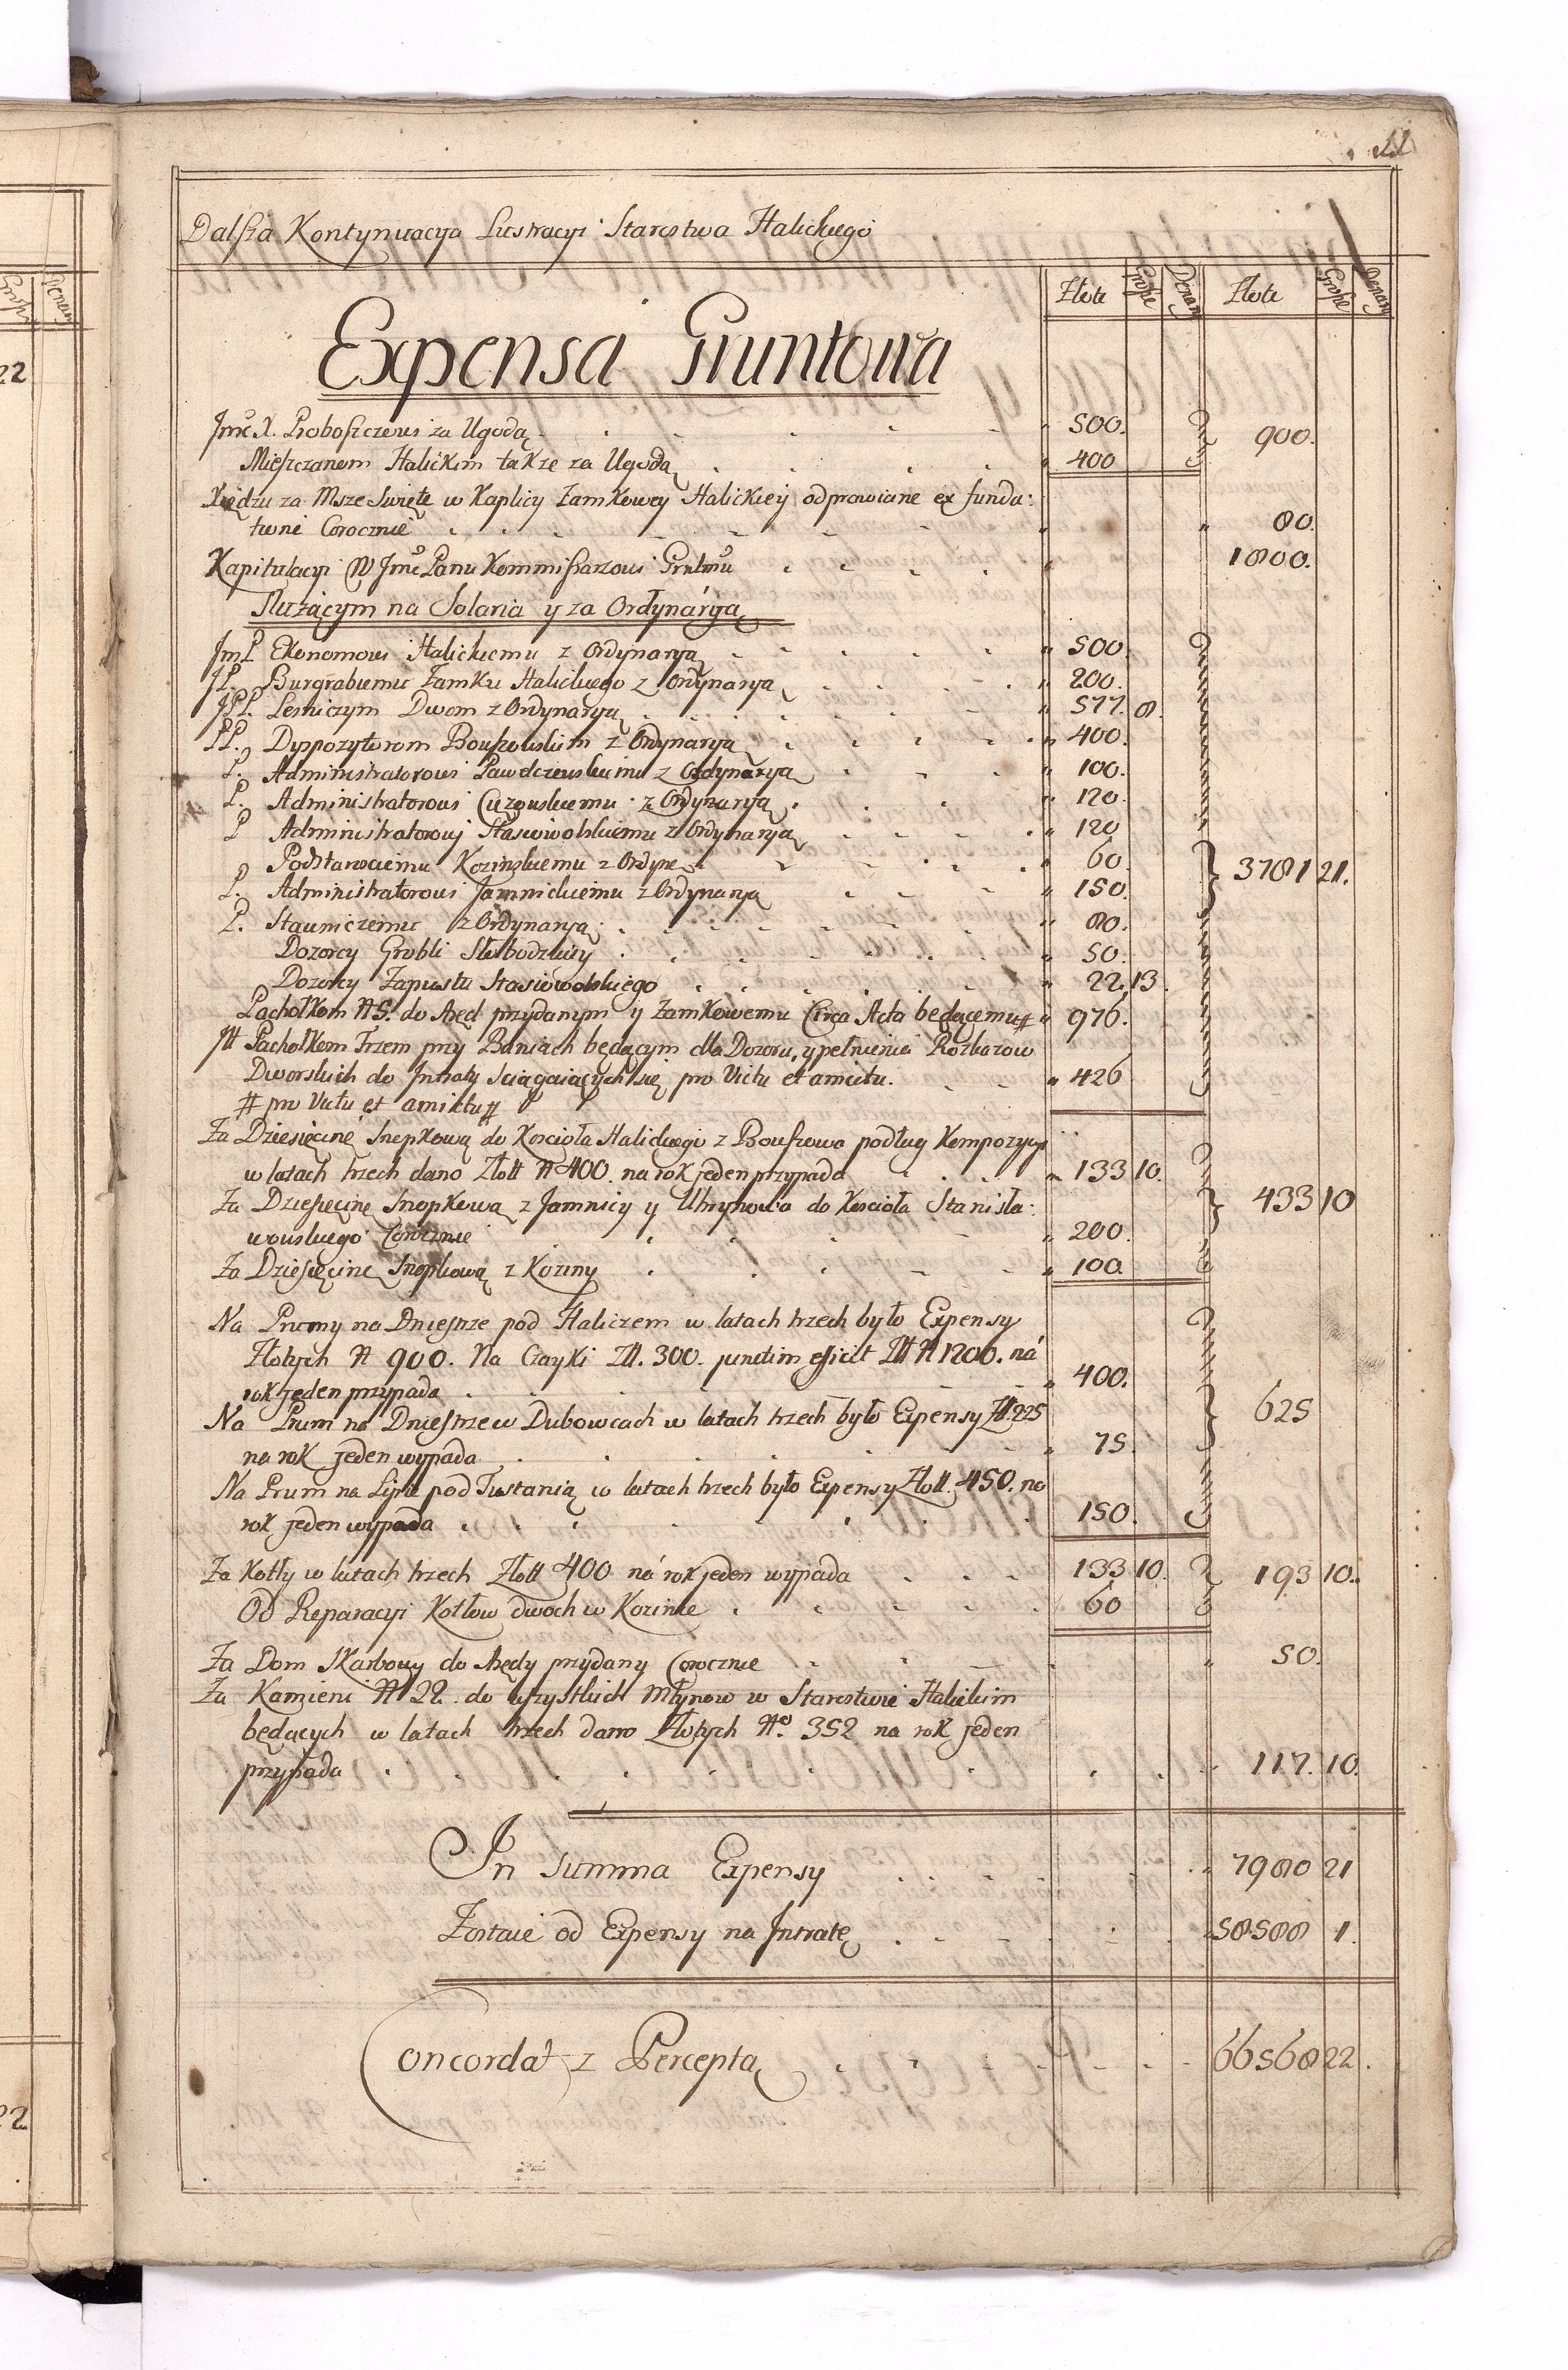 11
Dalsza Kontynuacya Lustracyi Starostwa Halickiego
Złote Grosze Denary Złote Grosze Denary
Expensa Gruntowa
Jmć X. Proboszczowi za Ugodą 500.
900.
Mieszczanom Halickim także za Ugodą 400
Xiędzu za Msze Swięte w Kaplicy Zamkowey Halickiey odprawiane ex funda:
tione Corocznie 80.
Kapitulacyi W Jmć Panu Kommissarzowi Grntmu 1800.
Służącym na Solaria y za Ordynaryą
Jm P Ekonomowi Halickiemu z Ordynaryą 500.
JP. Burgrabiemu Zamku Halickiego z Ordynaryą 200.
JPP. Lesniczym Dwom z Ordynaryą 577. 8.
PP. Dyspozytorom Bouszowskim z Ordynaryą 400.
P. Administratorowi Pawdczewskiemu z Ordynaryą 100.
P. Administratorowi Cuzowskiemu z Ordynaryą 120.
P Administratorowi Stasiowolskiemu z Ordynaryą 120
Podstarosciemu Kozinskiemu z Ordyne 60
3781 21.
P. Administratorowi Jamnickiemu z Ordynaryą 150.
P. Stawniczemu z Ordynaryą 80.
Dozorcy Grobli Słobodzkiey 50.
Dozorcy Zapustu Stasiowolskiego 22. 13.
Pachołkom N 5. do Aręd przydanym y Zamkowemu Circa Acta będącemu # 976.
Itt Pachołkom Trzem przy Baniach będącym dla Dozoru, y pełnienia Rozkazow
Dworskich do Intraty sciągaiących się pro Victu et amictu. 426
# pro Victu et amiktu #
Za Dziesięcinę Snopkową do Koscioła Halickiego z Bouszowa podług Kompozycyi
w latach trzech dano Złott N 400. na rok jeden przypada 133 10.
Za Dziesięcinę Snopkową z Jamnicy y Uhrynowa do Koscioła Stanisła:
433 10
wowskiego Corocznie 200.
Za Dziesięcinę Snopkową z Koziny 100.
Na Promy na Dniestrze pod Haliczem w latach trzech było Expensy
Złotych N 900. Na Czayki Zł. 300. junctim efficit Złł N 1200. ná
rok jeden przypada 400.
Na Prum na Dniestrze w Dubowcach w latach trzech było Expensy Zł. 225
625
na rok jeden wypada 75.
Na Prum na Lipie pod Tustanią w latach trzech było Expensy Złott. 450. na
rok jeden wypada 150.
Za Kotły w latach trzech Złott 400 ná rok jeden wypada 133 10. 193 10.
Od Reparacyi Kotłow dwoch w Kozinie 60
Za Dom Skarbowy do Arędy przydany Corocznie 50.
Za Kamieni N 22. do wszystkich Młynow w Starostwie Halickim
będących w latach trzech dano Złotych No. 352 na rok jeden
przypada 117. 10.
In Summa Expensy 7980 21
Zostaie od Expensy na Intratę 58588 1.
Concordat z Perceptą 66568 22.
22
22